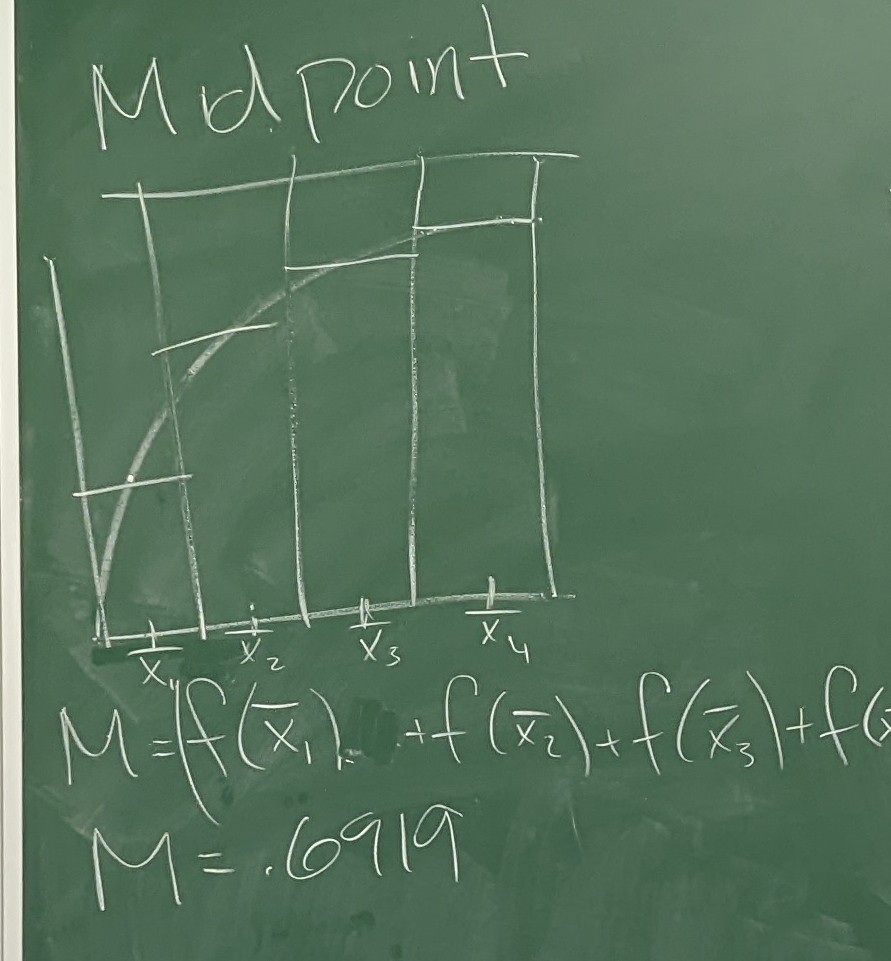 Midpoint
x̄₁ x̄₂ x̄₃ x̄₄
M=(f(x̄₁) +f(x̄₂)+f(x̄₃)+f(x̄
M=.6919